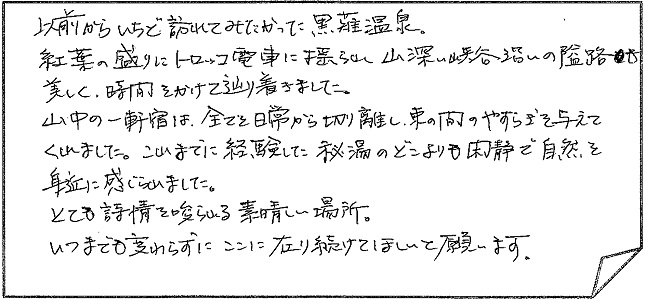 以前からいちど訪れてみたかった黒薙温泉。
紅葉の盛りにトロッコ電車に揺られ 山深い峡谷沿いの隘路も
美しく、時間をかけて辿り着きました。
山中の一軒宿は、全てを日常から切り離し、束の間のやすらぎを与えて
くれました。これまでに経験した秘湯のどこよりも閑静で自然を
身近に感じられました。
とても詩情を唆られる素晴しい場所。
いつまでも変わらずにここに在り続けてほしいと願います。